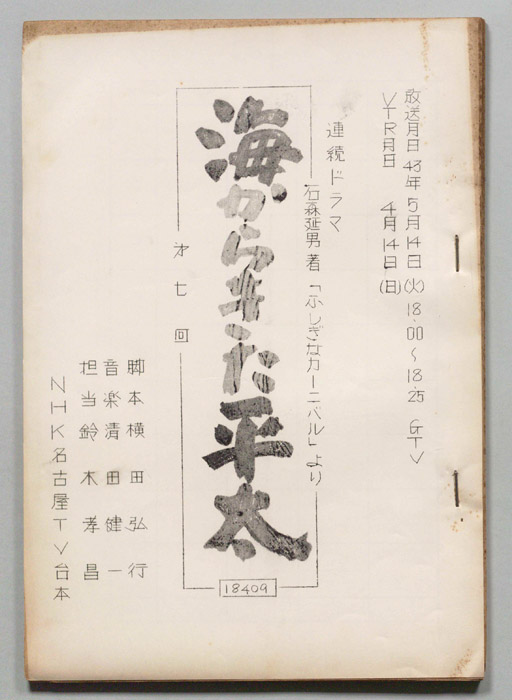 放送月日 43年 5月14日(火) 18.00~18.25 GTV
VTR月日 4月14日(日)
連続ドラマ
石森延男 著「ふしぎなカーニバル」より
海からきた平太
才七回
18409
脚本 横田弘行
音楽 清田健一
担当 鈴木孝昌
NHK名古屋TV台本